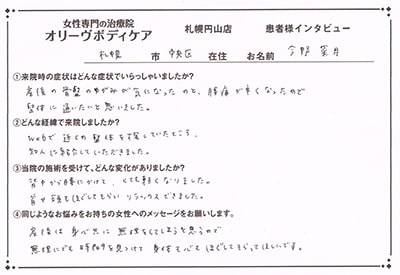 女性専門の治療院
オリーヴボディケア
札幌円山店
患者様インタビュー
札幌 市 中央区 在住 お名前 今野 葉月
①来院時の症状はどんな症状でいらっしゃいましたか？
産後の骨盤のゆがみが気になったのと、腰痛が辛くなったので
整体に通いたいと思いました。
②どんな経緯で来院しましたか？
webで近くの整体を探していたところ、
知人に紹介していただきました。
③当院の施術を受けて、どんな変化がありましたか？
背中から腰にかけて、とても軽くなりました。
背中 頭もほぐしてもらい リラックスできました。
④同じようなお悩みをお持ちの女性へのメッセージをお願いします。
産後は 身心共に 無理をしてしまうと思うので
無理にでも 時間を見つけて 身体も心も ほぐしてもらってほしいです。